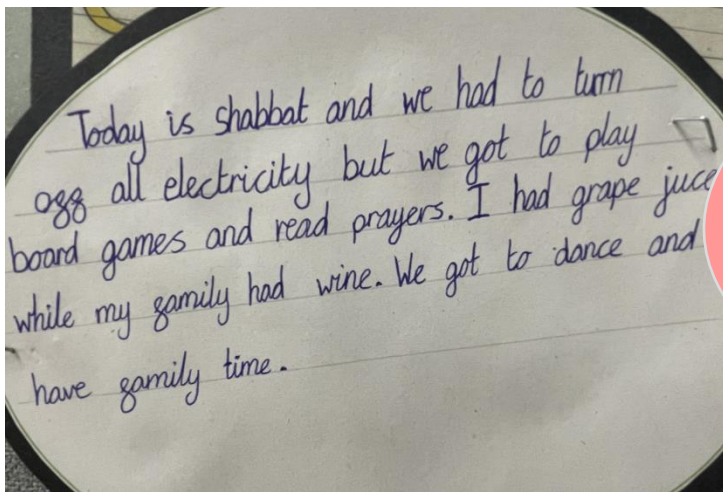 Today is shabbat and we had to turn
off all electricity but we got to play
board games and read prayers. I had grape juce
while my family had wine. We got to dance and
have family time.